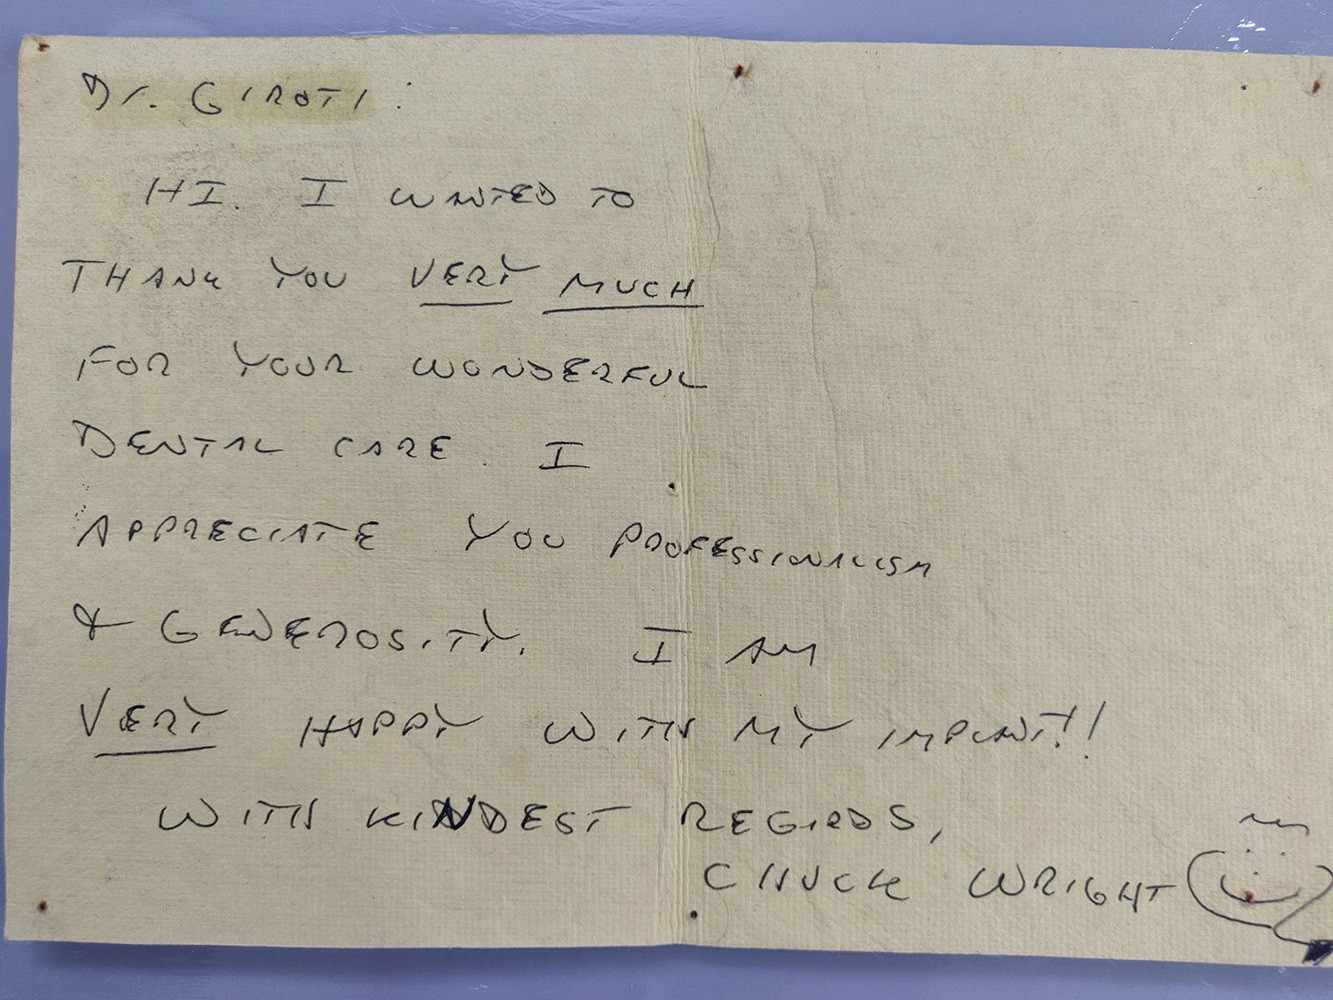 Dr. GIROTI:
HI. I WANTED TO
THANK YOU VERY MUCH
FOR YOUR WONDERFUL
DENTAL CARE. I
APPRECIATE YOU PROFESSIONALISM
& GENEROSITY. I AM
VERY HAPPY WITH MY IMPLANT!!
WITH KINDEST REGARDS,
CHUCK WRIGHT